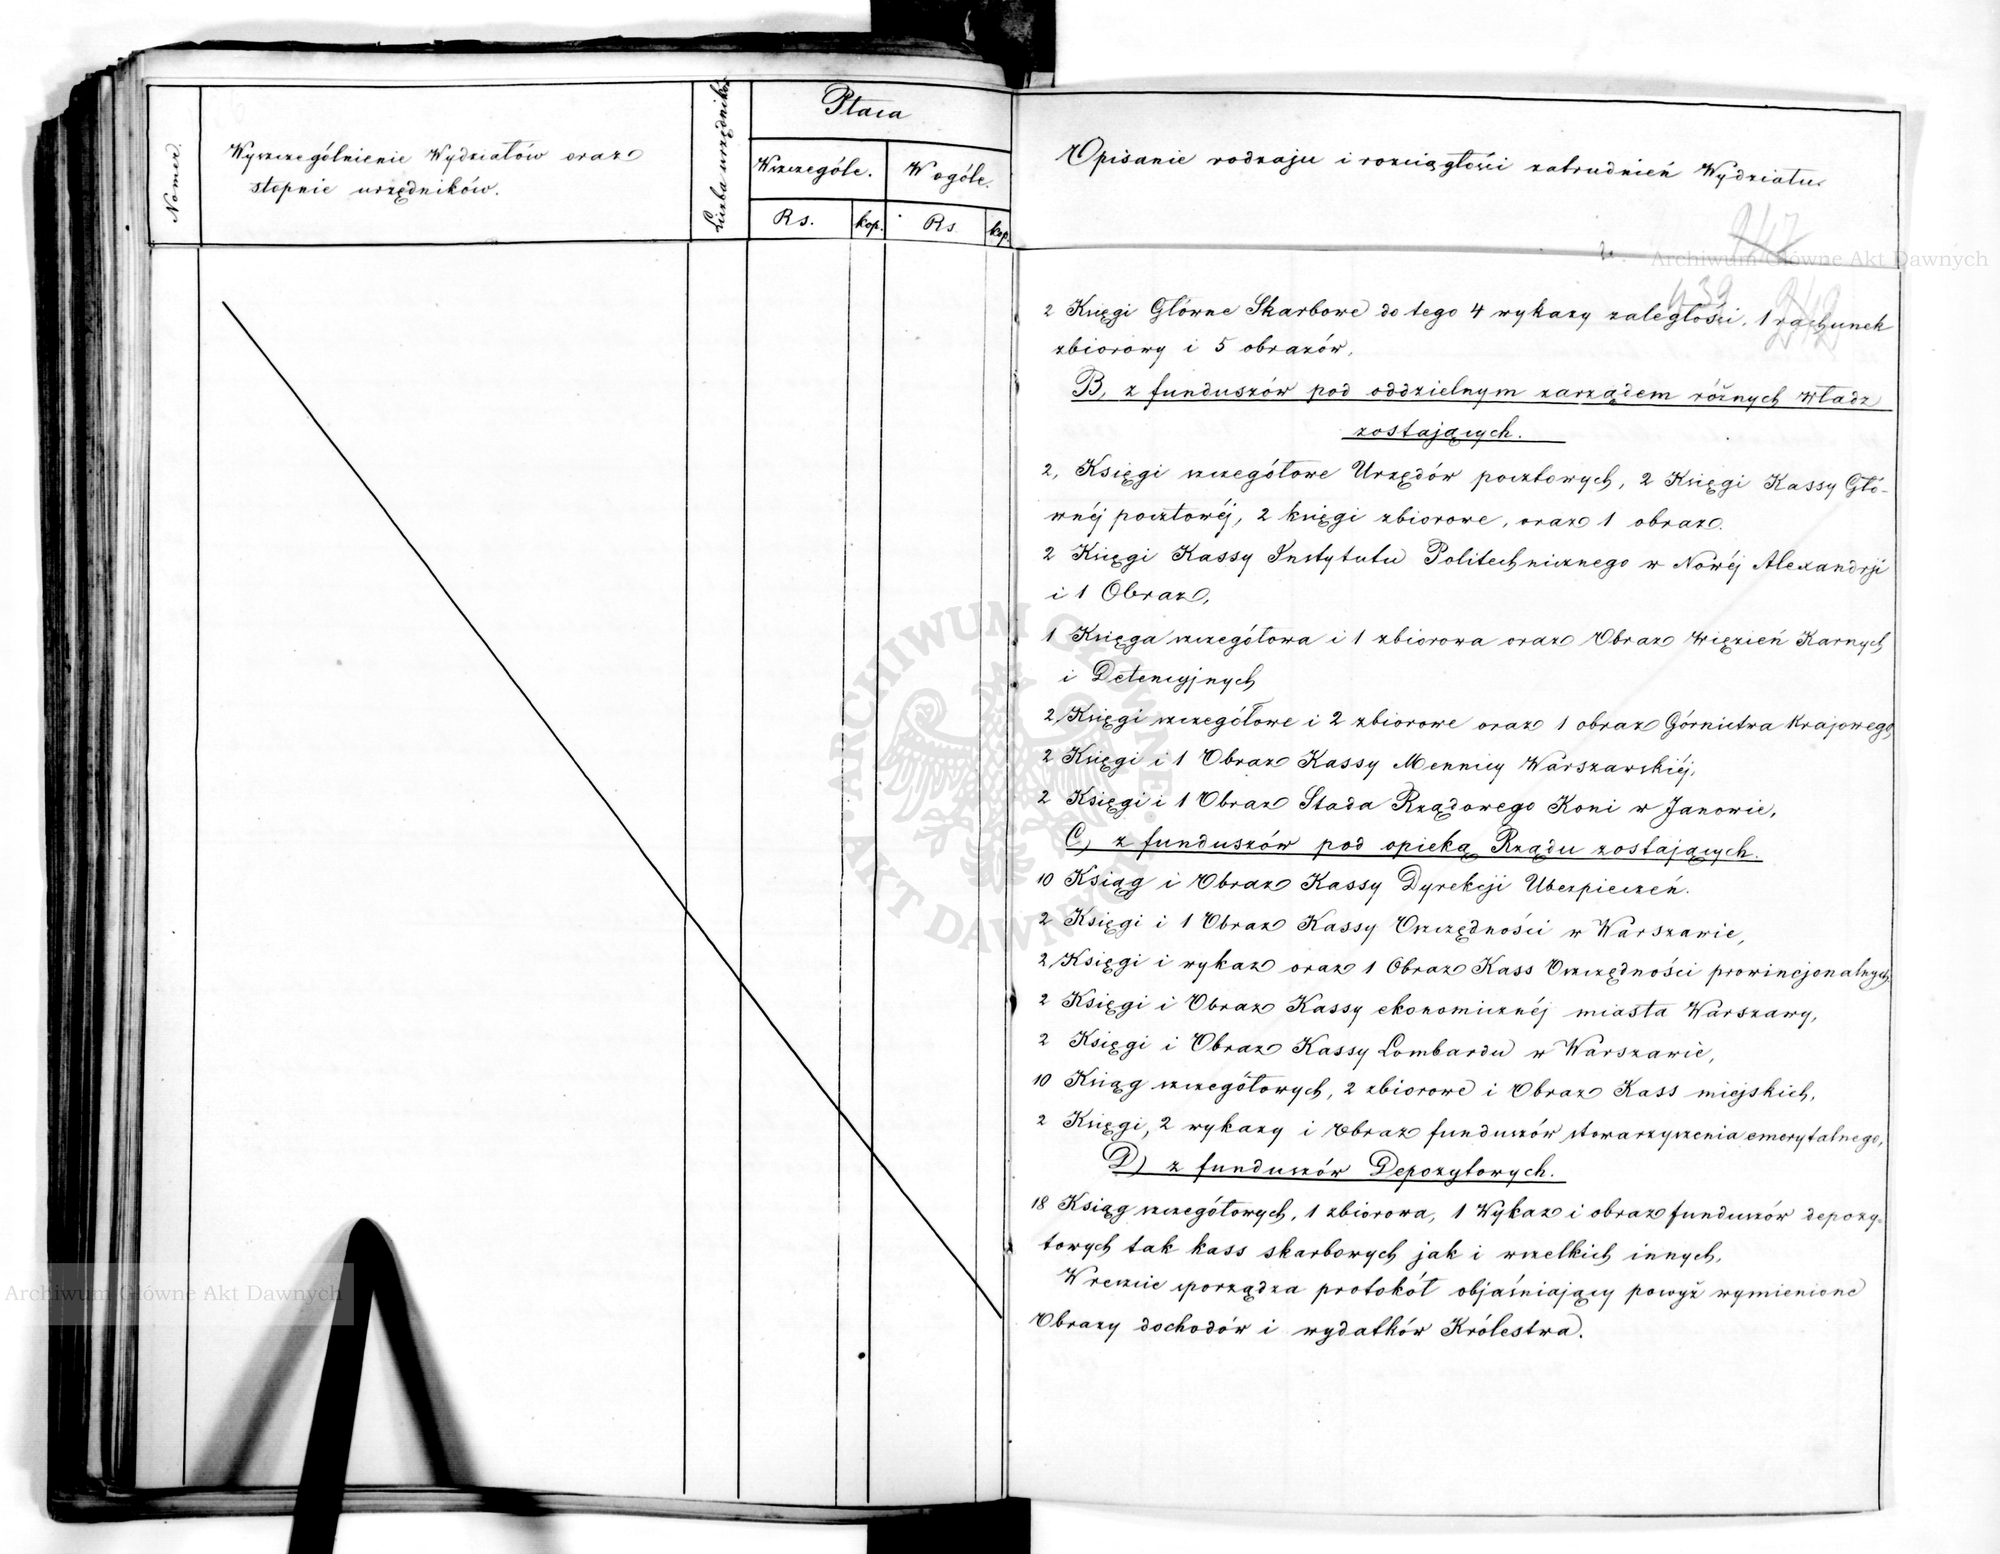 Nomer.
Wyszczególnienie Wydziałów oraz
stopnie urzędników.
Liczba urzędników
Płaca
Wszczególe.
W ogóle.
Rs.
kop.
Rs
kop.
Opisanie rodzaju i rozciągłości zatrudnień Wydziału.
247
439
2 Księgi Główne Skarbowe do tego 4 wykazy zaległości, 1 rachunek
zbiorowy i 5 obrazów,
B, z funduszów pod oddzielnym zarządem różnych władz
zostających.
2, Księgi szczegółowe Urzędów pocztowych, 2 Księgi Kassy Głó-
wnéj pocztowéj, 2 księgi zbiorowe, oraz 1 obraz.
2 Księgi Kassy Instytutu Politechnicznego w Nowéj Alexandrji
i 1 Obraz,
1 Księga szczegółowa i 1 zbiorowa oraz Obraz więzień Karnych
i Detencyjnych
2, Księgi szczegółowe i 2 zbiorowe oraz 1 obraz Górnictwa krajowego,
2 Księgi i 1 Obraz Kassy Mennicy Warszawskiéj,
2 Księgi i 1 Obraz Stada Rządowego Koni w Janowie,
C, z funduszów pod opieką Rządu zostających.
10 Ksiąg i Obraz Kassy Dyrekcji Ubezpieczeń.
2 Księgi i 1 Obraz Kassy Oszczędności w Warszawie,
2, Księgi i wykaz oraz 1 Obraz Kass Oszczędności prowincjonalnych,
2 Księgi i Obraz Kassy ekonomicznéj miasta Warszawy,
2 Księgi i Obraz Kassy Lombardu w Warszawie,
10 Ksiąg szczegółowych, 2 zbiorowe i Obraz Kass miejskich,
2 Księgi, 2 wykazy i Obraz funduszów stowarzyszenia emerytalnego,
D, z funduszów Depozytowych.
18 Ksiąg szczegółowych, 1 zbiorowa, 1 Wykaz i obraz funduszów depozy-
towych tak kass skarbowych jak i wszelkich innych,
Wreszcie sporządza protokół objaśniający powyż wymienione
Obrazy dochodów i wydatków Królestwa.
Archiwum Główne Akt Dawnych
ARCHIWUM GŁÓWNE AKT DAWNYCH
Archiwum Główne Akt Dawnych